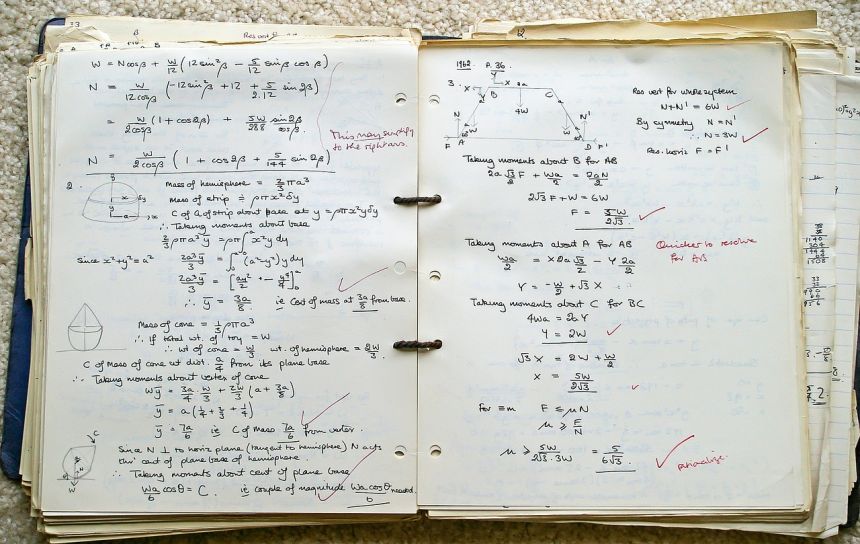 33
W = N cosβ + W/12 (12 sin²β − 5/12 sinβ cosβ)
N = W/12cosβ (−12 sin²β + 12 + 5/2.12 sin 2β)
= W/2cosβ (1 + cos2β) + 5W sin2β/288 cosβ
This may simplify
to the right ans.
N = W/2cosβ (1 + cos2β + 5/144 sin2β)
2.
Mass of hemisphere = 2/3 πρa³
Mass of strip ≑ ρπx²δy
C of G of strip about base at y = ρπx²yδy
∴ Taking moments about base
2/3 ρπa³ȳ = ρπ∫x²y dy
Since x²+y²=a²
2a³ȳ/3 = ∫(a²−y²)y dy
2a³ȳ/3 = [a²y²/2 + − y⁴/4]
∴ ȳ = 3a/8 ie Cent of mass at 3a/8 from base.
Mass of cone = 1/3 ρπa³
∴ if total wt. of toy = W
∴ wt of cone = W/3 wt. of hemisphere = 2W/3
C of Mass of cone at dist. a/4 from its plane base
∴ Taking moments about vertex of cone
Wȳ = 3a/4 . W/3 + 2W/3 (a + 3a/8)
ȳ = a(1/4 + 2/3 + 1/4)
ȳ = 7a/6 ie C of mass 7a/6 from vertex.
Since N ⊥ to horiz plane (tangent to hemisphere) N acts
thro' cent of plane base of hemisphere
∴ Taking moments about cent of plane base
Wa/6 cosθ = C. ie couple of magnitude Wa cosθ/6 needed.
1962. P.36.
3.
Y
X
X
2a
B
C
4W
N
N'
W
W
F
A
D
F'
Res vert for whole system
N+N' = 6W
By symmetry N = N'
∴ N = 3W
Res. horiz F = F'
Taking moments about B for AB
2a√3/2 F + Wa/2 = 2aN/2
2√3 F + W = 6W
F = 5W/2√3
Taking moments about A for AB
Quicker to resolve
for AB
Wa/2 = X2a√3/2 − Y2a/2
Y = −W/2 + √3 X
Taking moments about C for BC
4Wa = 2aY
Y = 2W
√3 X = 2W + W/2
X = 5W/2√3
for ≡m F ≤ μN
μ ≥ F/N
μ ≥ 5W/2√3.3W = 5/6√3
rationalize.